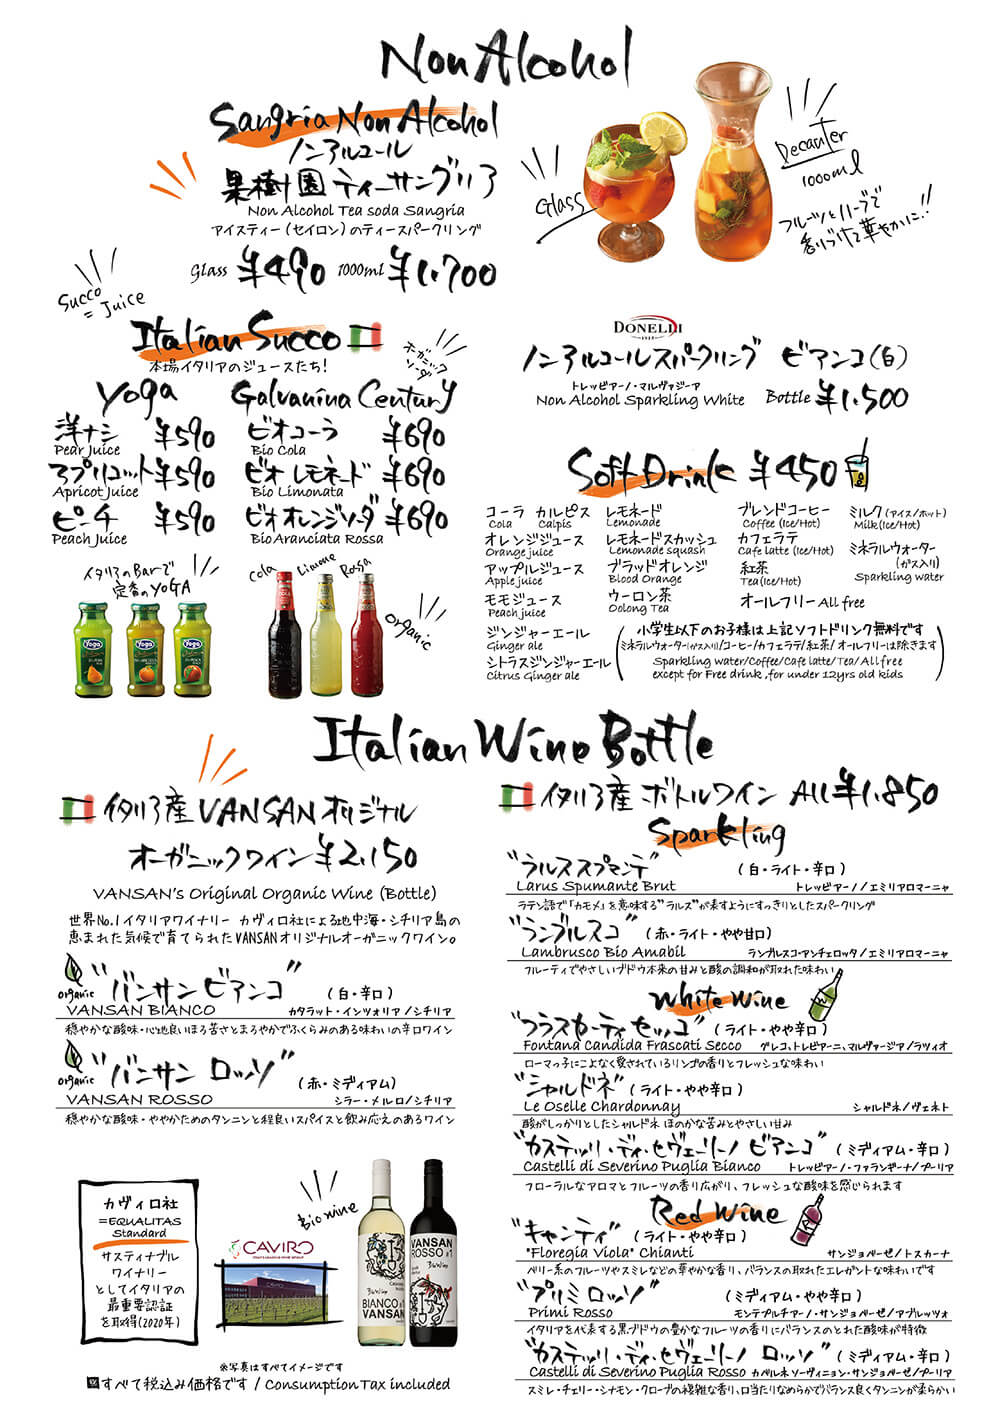 Non Alcohol
Sangria Non Alcohol
ノンアルコール
果樹園ティーサングリア
Non Alcohol Tea soda Sangria
アイスティー(セイロン)のティースパークリング
Glass ¥490 1000ml ¥1.700
Glass
Decanter
1000ml
フルーツとハーブで
香りづけて華やかに!!
Succo
= Juice
Italian Succo
本場イタリアのジュースたち!
オーガニック
ソーダ
Yoga
洋ナシ ¥590
Pear Juice
アプリコット ¥590
Apricot Juice
ピーチ ¥590
Peach Juice
Galvanina Century
ビオコーラ ¥690
Bio Cola
ビオレモネード ¥690
Bio Limonata
ビオオレンジソーダ ¥690
Bio Aranciata Rossa
イタリアのBarで
定番のYOGA
Yoga
Yoga
Yoga
Cola
Limone
Rossa
organic
DONELLI
ノンアルコールスパークリング ビアンコ(白)
トレッビアーノ・マルヴァジーア
Non Alcohol Sparkling White Bottle ¥1.500
Soft Drink ¥450
コーラ カルピス
Cola Calpis
オレンジジュース
Orange juice
アップルジュース
Apple juice
モモジュース
Peach juice
ジンジャーエール
Ginger ale
シトラスジンジャーエール
Citrus Ginger ale
レモネード
Lemonade
レモネードスカッシュ
Lemonade squash
ブラッドオレンジ
Blood Orange
ウーロン茶
Oolong Tea
ブレンドコーヒー
Coffee (Ice/Hot)
カフェラテ
Cafe latte (Ice/Hot)
紅茶
Tea (Ice/Hot)
オールフリー All free
ミルク(アイス/ホット)
Milk (Ice/Hot)
ミネラルウォーター
(ガス入り)
Sparkling water
小学生以下のお子様は上記ソフトドリンク無料です
ミネラルウォーター(ガス入り)/コーヒー/カフェラテ/紅茶/オールフリーは除きます
Sparkling water/Coffee/Cafe latte/Tea/All free
except for Free drink ,for under 12yrs old kids
Italian Wine Bottle
イタリア産VANSANオリジナル
オーガニックワイン¥2.150
VANSAN's Original Organic Wine (Bottle)
世界No.1イタリアワイナリー カヴィロ社による地中海・シチリア島の
恵まれた気候で育てられたVANSANオリジナルオーガニックワイン。
organic
"バンサン ビアンコ" (白・辛口)
VANSAN BIANCO カタラット・インツォリア/シチリア
穏やかな酸味・心地良いほろ苦さとまろやかでふくらみのある味わいの辛口ワイン
organic
"バンサン ロッソ" (赤・ミディアム)
VANSAN ROSSO シラー・メルロ/シチリア
穏やかな酸味・ややかためのタンニンと程良いスパイスと飲み応えのあるワイン
カヴィロ社
=EQUALITAS
Standard
サスティナブル
ワイナリー
としてイタリアの
最重要認証
を取得(2020年)
CAVIRO
Bio wine
BIANCO #1
VANSAN
VANSAN
ROSSO #1
※写真はすべてイメージです
すべて税込み価格です / Consumption Tax included
イタリア産 ボトルワイン All ¥1.850
Sparkling
"ラルス スプマンテ" (白・ライト・辛口)
Larus Spumante Brut トレッビアーノ/エミリアロマーニャ
ラテン語で「カモメ」を意味する"ラルズ"が表すようにすっきりとしたスパークリング
"ランブルスコ" (赤・ライト・やや甘口)
Lambrusco Bio Amabil ランブルスコ・アンチェロッタ/エミリアロマーニャ
フルーティでやさしいブドウ本来の甘みと酸の調和が取れた味わい
White Wine
"フラスカーティ セッコ" (ライト・やや辛口)
Fontana Candida Frascati Secco グレコ、トレビアーニ、マルヴァージア/ラツィオ
ローマっ子にこよなく愛されているリンゴの香りとフレッシュな味わい
"シャルドネ" (ライト・やや辛口)
Le Oselle Chardonnay シャルドネ/ヴェネト
酸がしっかりとしたシャルドネ ほのかな苦みとやさしい甘み
"カステッリ・ディ・セヴェリーノ ビアンコ" (ミディアム・辛口)
Castelli di Severino Puglia Bianco トレッビアーノ・ファランギーナ/プーリア
フローラルなアロマとフルーツの香り広がり、フレッシュな酸味を感じられます
Red Wine
"キャンティ" (ライト・やや辛口)
"Floregia Viola" Chianti サンジョベーゼ/トスカーナ
ベリー系のフルーツやスミレなどの華やかな香り、バランスの取れたエレガントな味わいです
"プリミ ロッソ" (ミディアム・やや辛口)
Primi Rosso モンテプルチアーノ・サンジョベーゼ/アブルッツォ
イタリアを代表する黒ブドウの豊かなフルーツの香りにバランスのとれた酸味が特徴
"カステッリ・ディ・セヴェリーノ ロッソ" (ミディアム・辛口)
Castelli di Severino Puglia Rosso カベルネソーヴィニョン・サンジョベーゼ/プーリア
スミレ・チェリー・シナモン・クローブの複雑な香り、口当たりなめらかでバランス良くタンニンが柔らかい